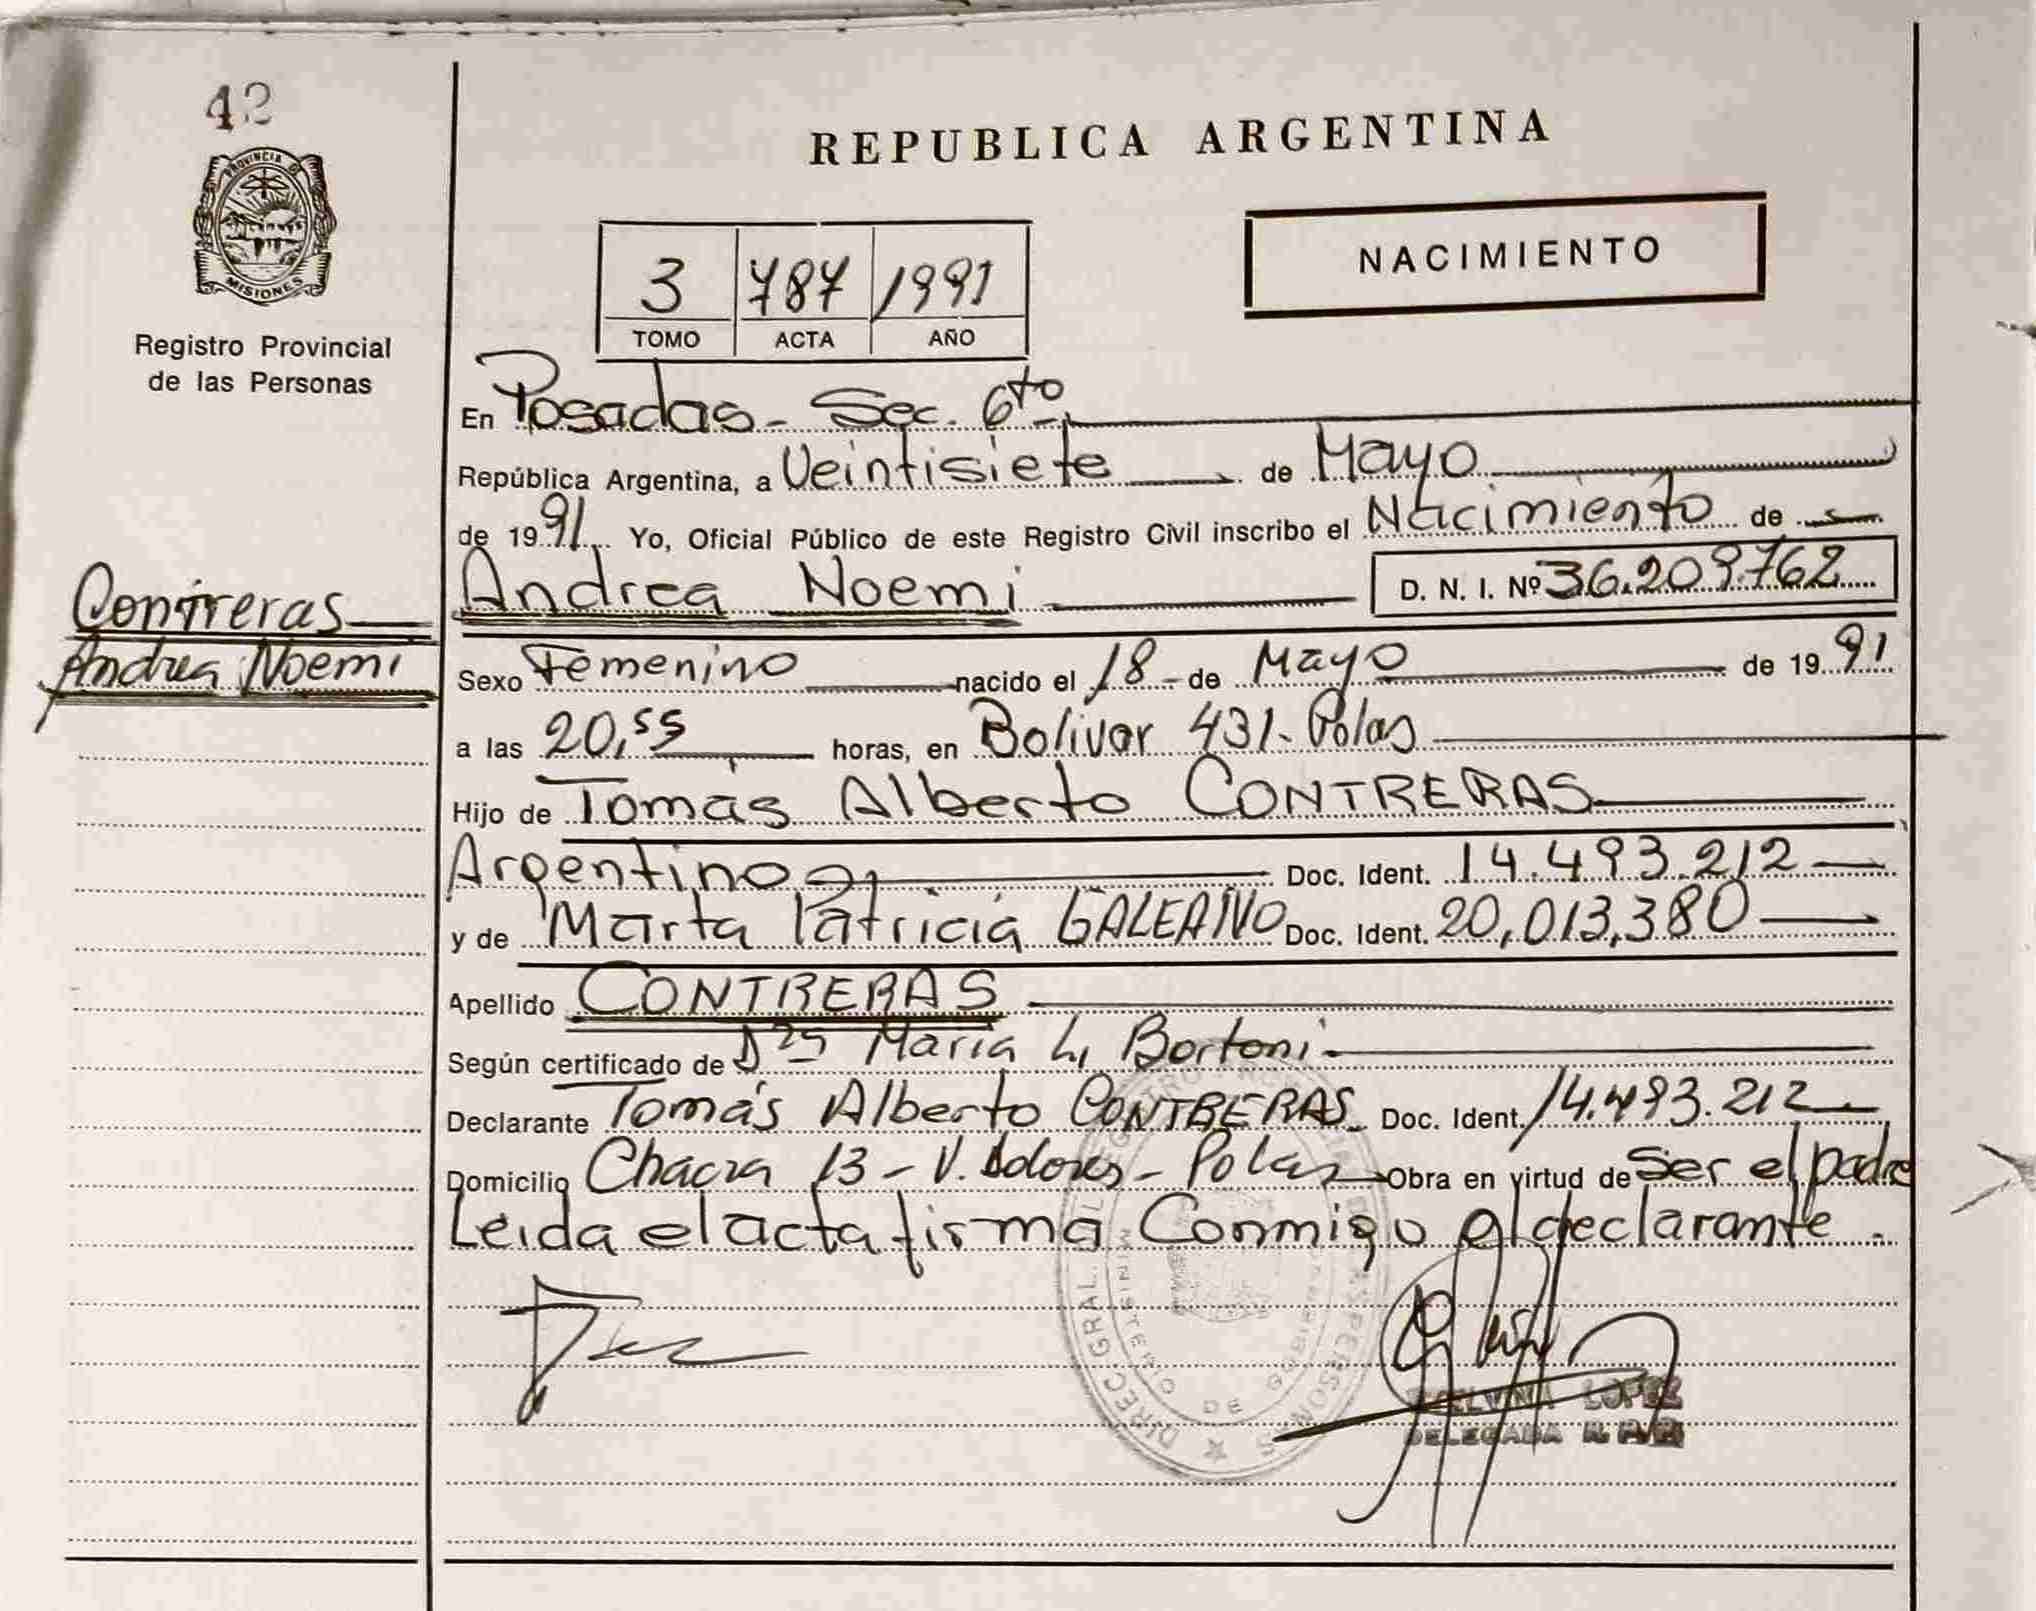 42
REPUBLICA ARGENTINA
PROVINCIA DE
MISIONES
NACIMIENTO
3 787 1991
TOMO ACTA AÑO
Registro Provincial
de las Personas
En Posadas - Sec. 6to
República Argentina, a Veintisiete de Mayo
de 1991 Yo, Oficial Público de este Registro Civil inscribo el Nacimiento de
Contreras
Andrea Noemi
Andrea Noemi D. N. I. Nº 36.209.762
Sexo Femenino nacido el 18 - de Mayo de 1991
a las 20,55 horas, en Bolivar 431 - Pdas
Hijo de Tomás Alberto CONTRERAS
Argentino Doc. Ident. 14.493.212
y de Marta Patricia GALEANO Doc. Ident. 20,013,380
Apellido CONTRERAS
Según certificado de María L, Bortoni
Declarante Tomás Alberto CONTRERAS Doc. Ident. 14.493.212
Domicilio Chacra 13 - V. Dolores - Pdas Obra en virtud de Ser el padre
Leida el acta firma Conmigo el declarante.
DIREC. GRAL. DEL REGISTRO PROVINCIAL DE LAS PERSONAS
MINISTERIO DE GOBIERNO
LOPEZ
DELEGADA R. P. P.